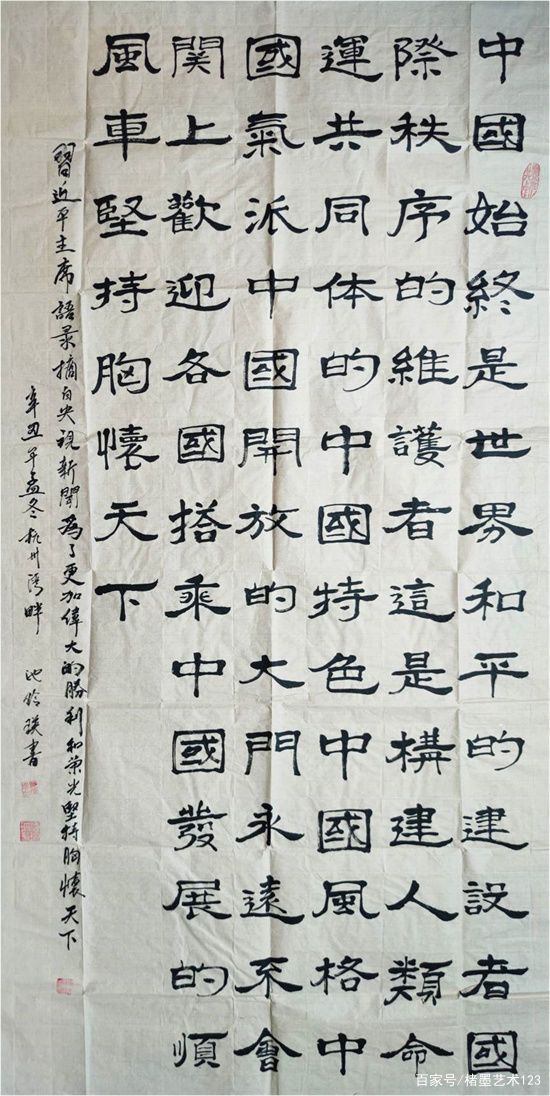 中國始終是世界和平的建设者國
際秩序的維護者這是構建人類命
運共同体的中國特色中國風格中
國氣派中國開放的大門永遠不會
関上歡迎各國搭乘中國發展的順
風車堅持胸懷天下
習近平主席語录摘自央視新聞為了更加偉大的勝利和榮光堅持胸懷天下
辛丑年孟冬杭州湾畔 池玲瑛書
百家号/楮墨艺术123